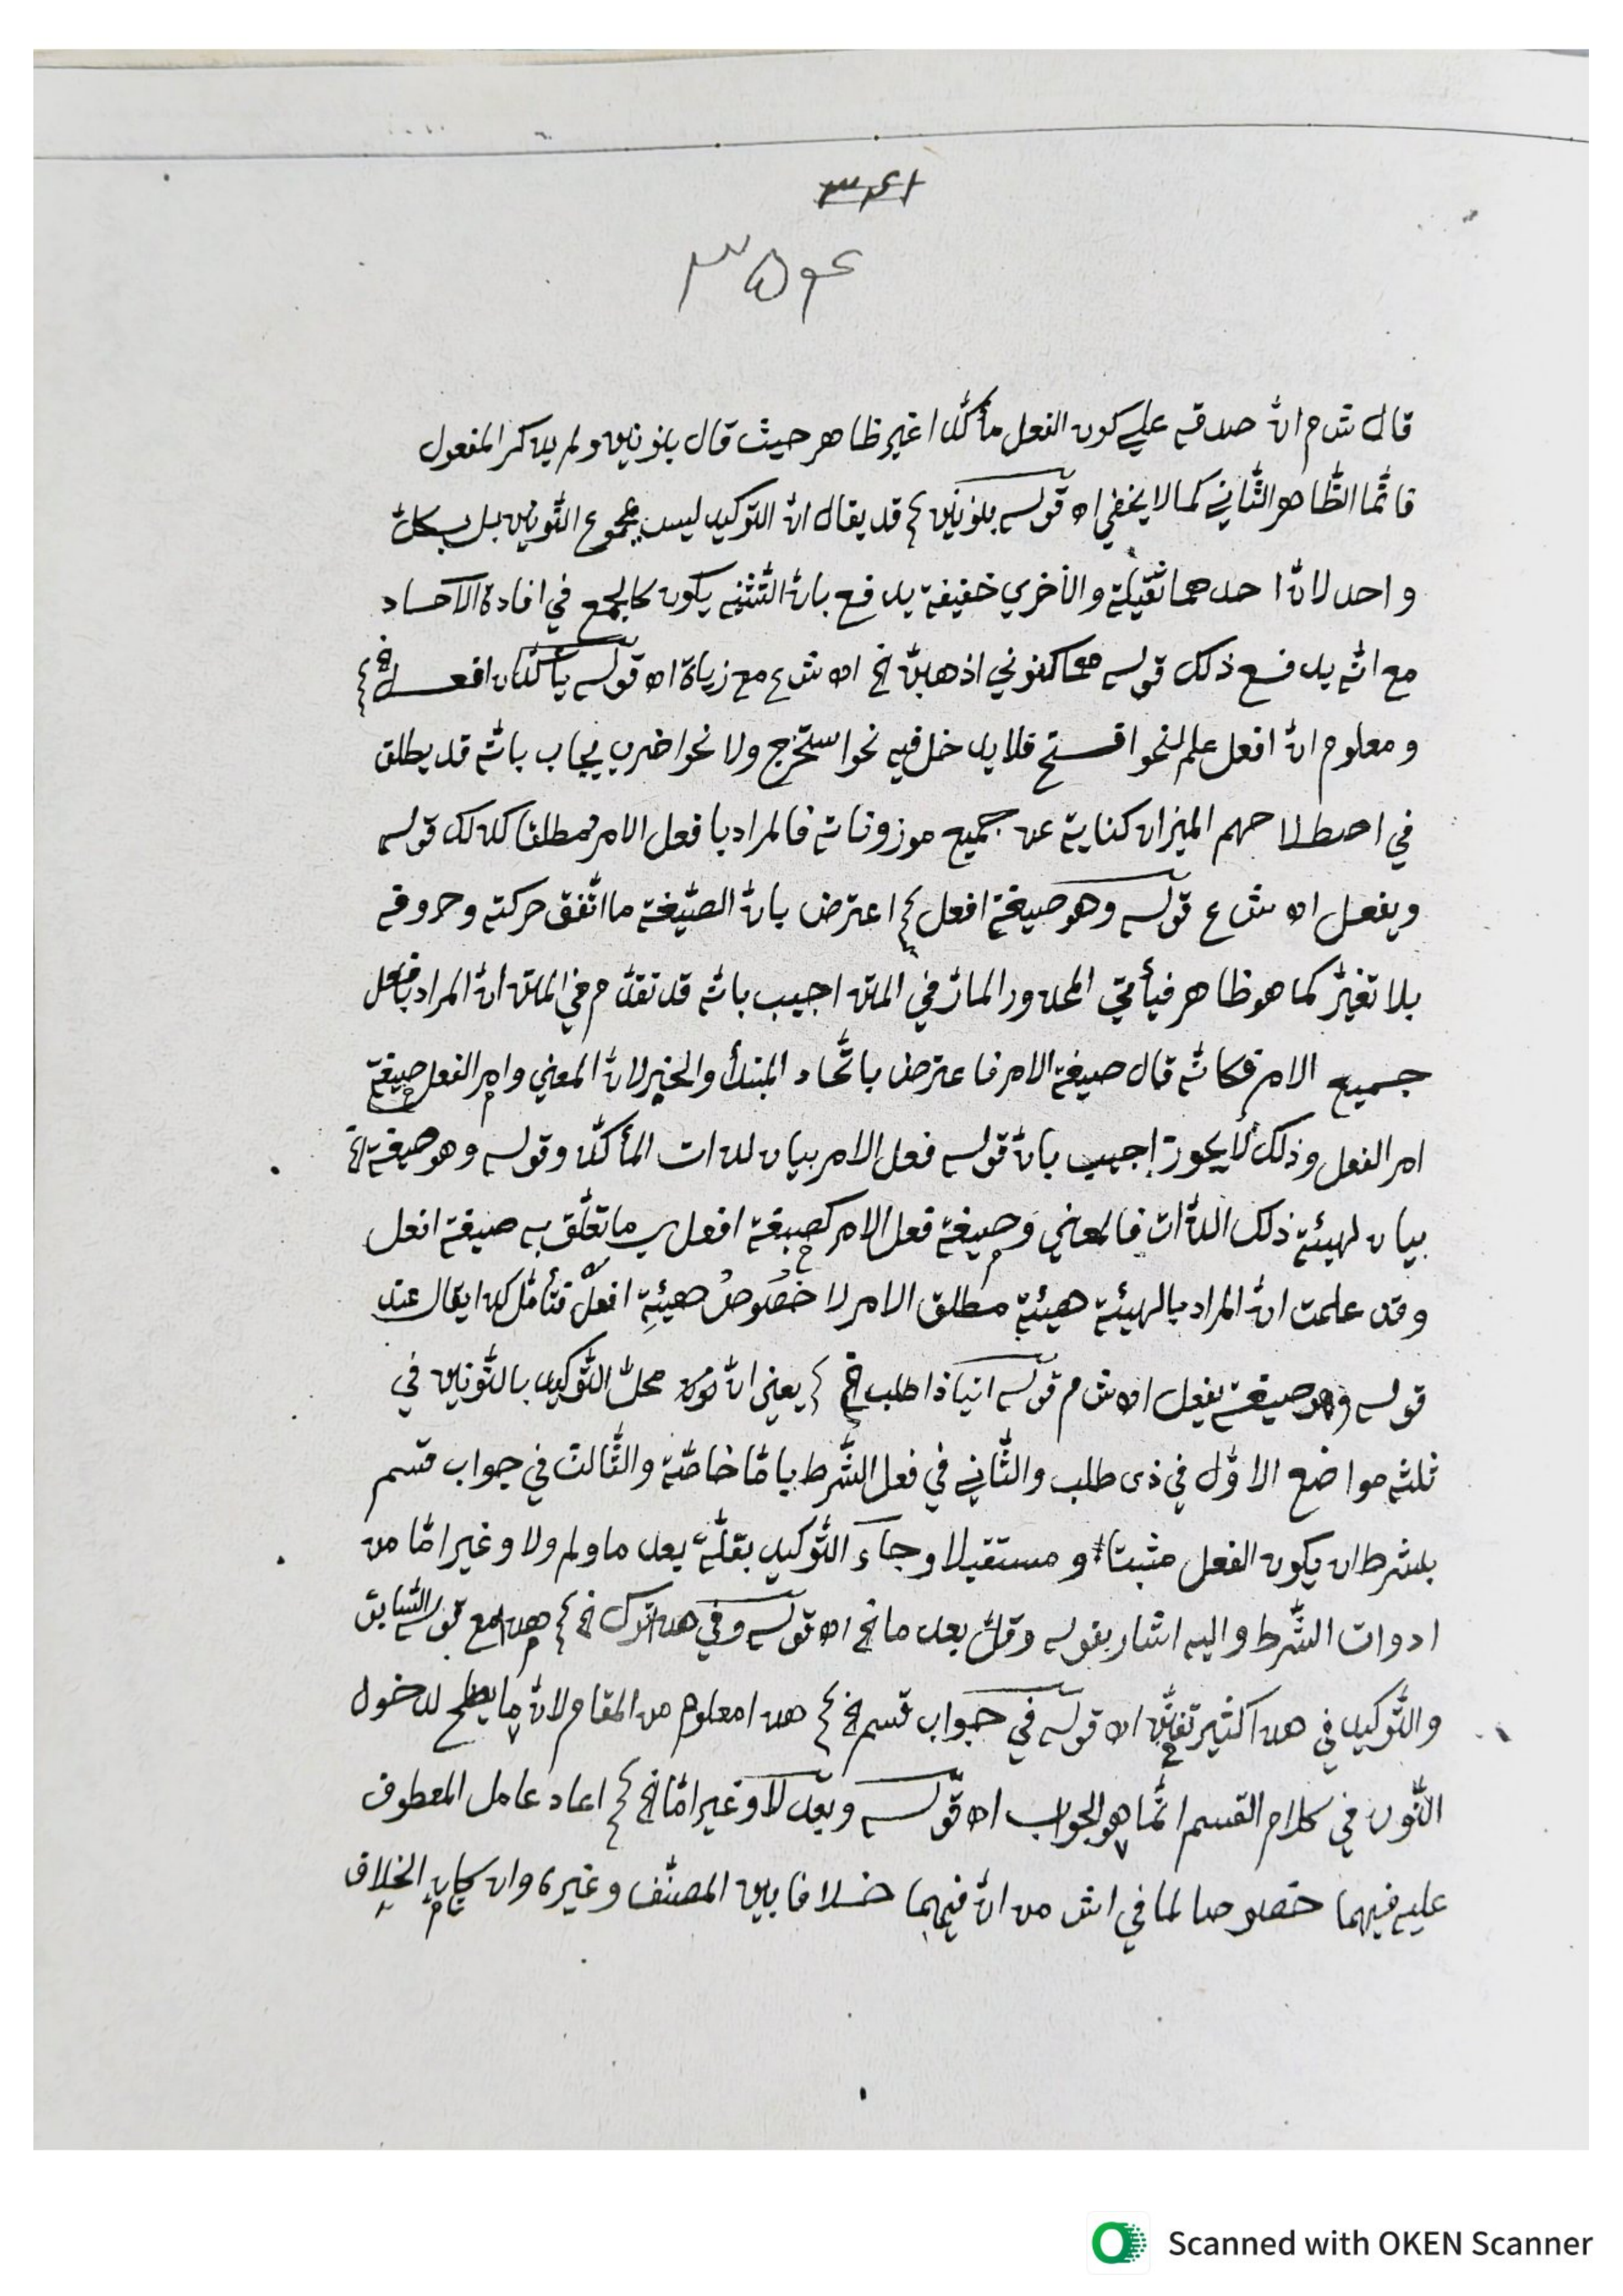 قال ش م انّ صدقه علي كون الفعل مأكّدا غير ظاهر حيث قال بنونين ولم يذكر المفعول
فانّما الظّاهر الثّاني كما لا يخفي اه قوله بنونين قد يقال انّ التوكيد ليس بمجموع النّونين بل بكلّ
واحد لانّ احدهما ثقيلة والأخري خفيفة يدفع بانّ التّثنية يكون كالجمع في افادة الآحاد
مع انّه يدفع ذلك قوله كنوني اذهبنّ الخ اه ش ع مع زياة اه قوله يأكّدان افعل الخ
ومعلوم انّ افعل علم لنحو افتح فلا يدخل فيه نحو استخرج ولا نحو اضرب يجاب بانّه قد يطلق
في اصطلاحهم الميزان كناية عن جميع موزوناته فالمراد بافعل الامر مطلقا كذلك قوله
ويفعل اه ش ع قوله وهو صيغة افعل اعترض بانّ الصّيغة ما اتّفق حركته وحروفه
بلا تغيّر كما هو ظاهر فيأتي المحذور المارّ في المتن اجيب بانّه قد تقدّم في المتن انّ المراد بافعل
جميع الامر فكانّه قال صيغة الامر فاعترض باتّحاد المبتدأ والخبر لانّ المعني وامر الفعل صيغة
امر الفعل وذلك لا يجوز اجيب بانّ قوله فعل الامر بيان لذات المأكّد وقوله وهو صيغة الخ
بيان لهيئة ذلك الذّات فالمعني وصيغة فعل الامر كصيغة افعل ما تعلّق به صيغة افعل
وقد علمت انّ المراد بالهيئة هيئة مطلق الامر لا خصوصُ هيئةِ افعل فتأمّل كذا يقال عند
قوله وهو صيغة يفعل اه ش م قوله اتيا ذا طلب الخ يعني انّ محلّ التّوكيد بالنّونين في
ثلثه مواضع الاوّل في ذي طلب والثّاني في فعل الشّرط بامّا خاصّة والثّالث في جواب قسم
بشرط ان يكون الفعل مثبتا ومستقبلا وجاء التّوكيد بقلّة بعد ما ولم ولا وغير امّا من
ادوات الشّرط واليه اشار بقوله وقلّ بعد ما الخ اه قوله وفي هذا ترك الخ هذا مع قوله السّابق
والتّوكيد في هذا كثير اه قوله في جواب قسم الخ هذا معلوم من المقام لانّ ما يصلح لدخول
النّون في كلام القسم انّما هو الجواب اه قوله وبعد لا وغير امّا الخ اعاد عامل المعطوف
عليه فيهما خصوصا لما في اش من انّ فيهما خلافا بين المصنّف وغيره وان كان الخلاف
Scanned with OKEN Scanner